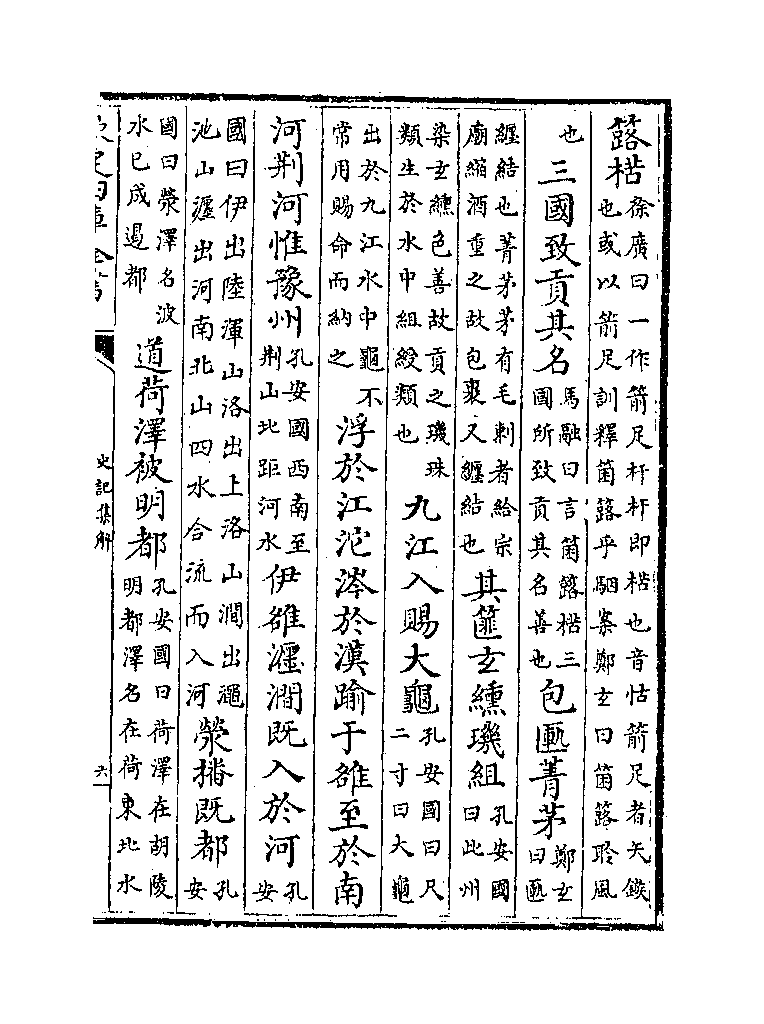 簬楛徐廣曰一作箭足杆杆即楛也音怙箭足者矢鏃也或以箭足訓釋箘簬乎駰案鄭玄曰箘簬聆風
也三國致貢其名馬融曰言箘簬楛三國所致貢其名善也包匭菁茅鄭玄曰匭
纏結也菁茅茅有毛刺者給宗廟縮酒重之故包裹又纏結也其篚玄纁璣組孔安國曰此州
染玄纁色善故貢之璣珠類生於水中組綬類也九江入賜大龜孔安國曰尺二寸曰大龜
出於九江水中龜不常用賜命而納之浮於江沱涔於漢踰于雒至於南
河荆河惟豫州孔安國西南至荆山北距河水伊雒瀍澗既入於河孔安
國曰伊出陸渾山洛出上洛山澗出澠池山瀍出河南北山四水合流而入河滎播既都孔安
國曰滎澤名波水已成遏都道荷澤被明都孔安國曰荷澤在胡陵明都澤名在荷東北水
欽定四庫全書
史記集解
六